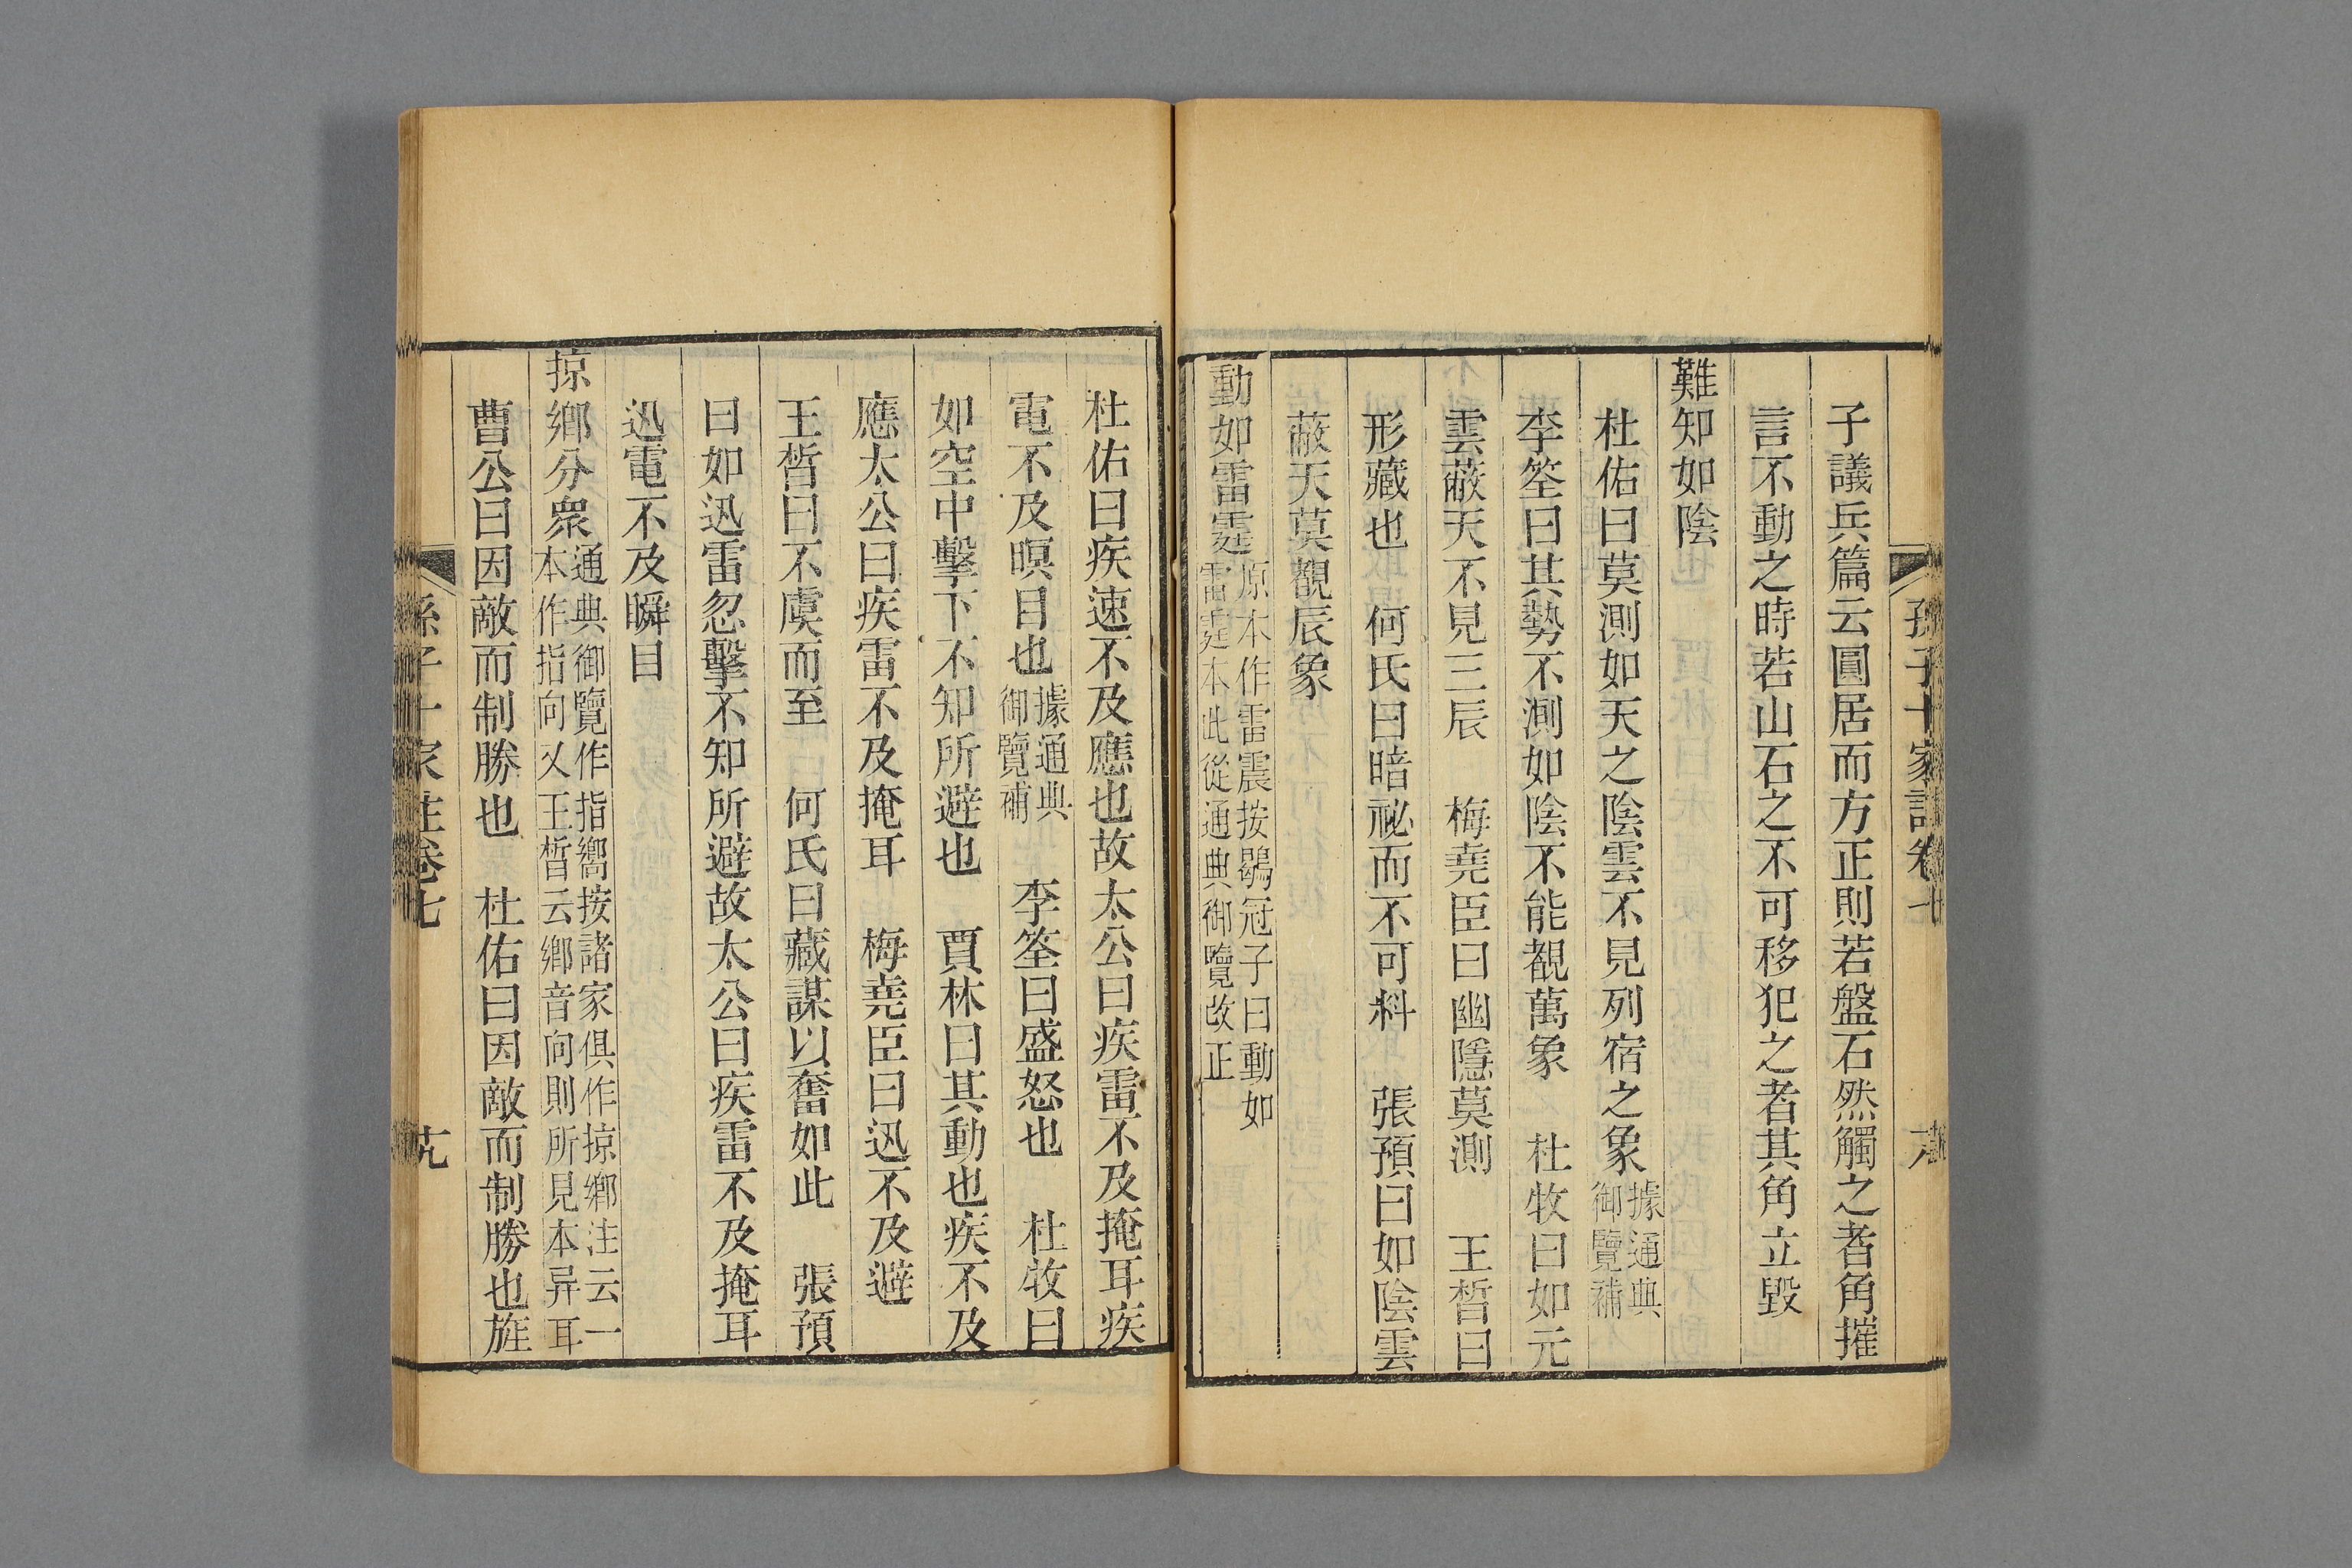 子議兵篇云圓居而方正則若盤石然觸之者角摧
言不動之時若山石之不可移犯之者其角立毀
難知如陰
杜佑曰莫測如天之陰雲不見列宿之象據通典御覽補
李筌曰其勢不測如陰不能覩萬象　杜牧曰如元
雲蔽天不見三辰　梅堯臣曰幽隱莫測　王晳曰
形藏也　何氏曰暗祕而不可料　張預曰如陰雲
蔽天莫覩辰象
動如雷霆原本作雷震按鶡冠子曰動如雷霆本此從通典御覽改正
杜佑曰疾速不及應也故太公曰疾雷不及掩耳疾
電不及瞑目也據通典御覽補　李筌曰盛怒也　杜牧曰
如空中擊下不知所避也　賈林曰其動也疾不及
應太公曰疾雷不及掩耳　梅堯臣曰迅不及避
王晳曰不虞而至　何氏曰藏謀以奮如此　張預
曰如迅雷忽擊不知所避故太公曰疾雷不及掩耳
迅電不及瞬目
掠鄉分衆通典御覽作指嚮按諸家俱作掠鄉注云一本作指向又王晳云鄉音向則所見本异耳
曹公曰因敵而制勝也　杜佑曰因敵而制勝也旌
孫子十家註卷七　十九